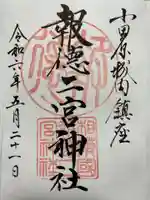 小田原城内鎮座
報徳二宮神社
令和六年五月二十一日